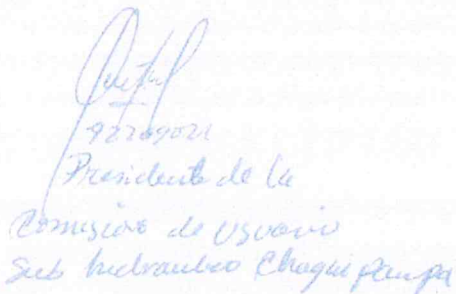 Presidente de la
Comision de Usuario
Sub hidraulico Chaquipampa